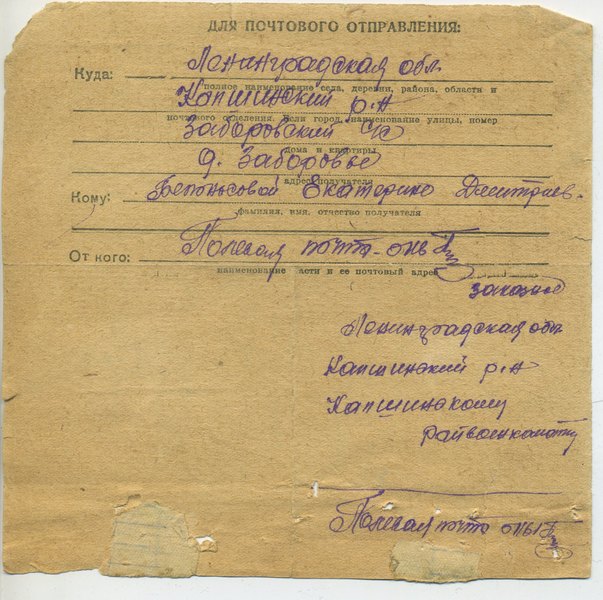 ДЛЯ ПОЧТОВОГО ОТПРАВЛЕНИЯ:
Куда: Ленинградская обл
полное наименование села, деревни, района, области и
Капшинский р-н
почтового отделения. Если город, наименование улицы, номер
Заборовский с/с
дома и квартиры
д. Заборовье
адрес получателя
Кому: Екатерине Дмитриев-
фамилия, имя, отчество получателя
От кого: Полевая почта
наименование части и ее почтовый адрес
заказное
Ленинградская обл
Капшинский р-н
Капшинскому
райвоенкомату
Полевая почта